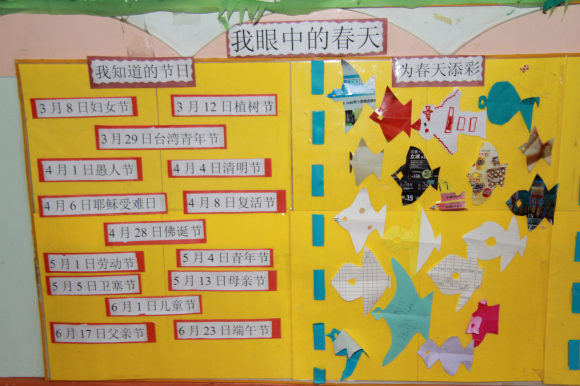 我眼中的春天
我知道的节日
为春天添彩
3月8日妇女节
3月12日植树节
3月29日台湾青年节
4月1日愚人节
4月4日清明节
4月6日耶稣受难日
4月8日复活节
4月28日佛诞节
5月1日劳动节
5月4日青年节
5月5日卫塞节
5月13日母亲节
6月1日儿童节
6月17日父亲节
6月23日端午节